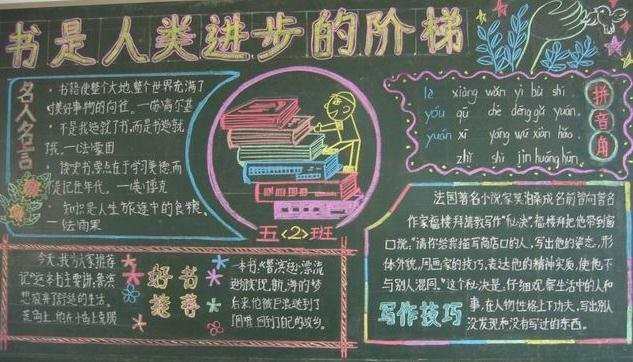 书是人类进步的阶梯
名人名言
·书籍使整个大地,整个世界充满了
对美好事物的向往。—高尔基
·不是我造就了书,而是书造就
我。—法蒙田
读史书要点在于学习美德而
不是记住年代。
·知识是人生旅途中的食粮。
—法雨果
五〈2〉班
拼音角
la xiàng wǎn yì bù shi
yóu qū chē dēng gǎ yuán
yuán xī yáng wú xiàn hǎo
zhǐ shì jìn huáng hūn
好书推荐
今天,我为大家推荐
一本书,《鲁滨逊漂流
写作技巧
法国著名小说家莫泊桑成名前曾向著名
作家福楼拜请教写作"秘诀"。福楼拜把他带到窗
口说:"请你给我描写商店口的人,写出他的姿态,形
体外貌,用画家的技巧,表达他的精神实质,使他不
与别人混同。"这个秘决是,仔细观察生活中的人和
事,在人物性格上下功夫,写出别人
没发现和没有写过的东西。